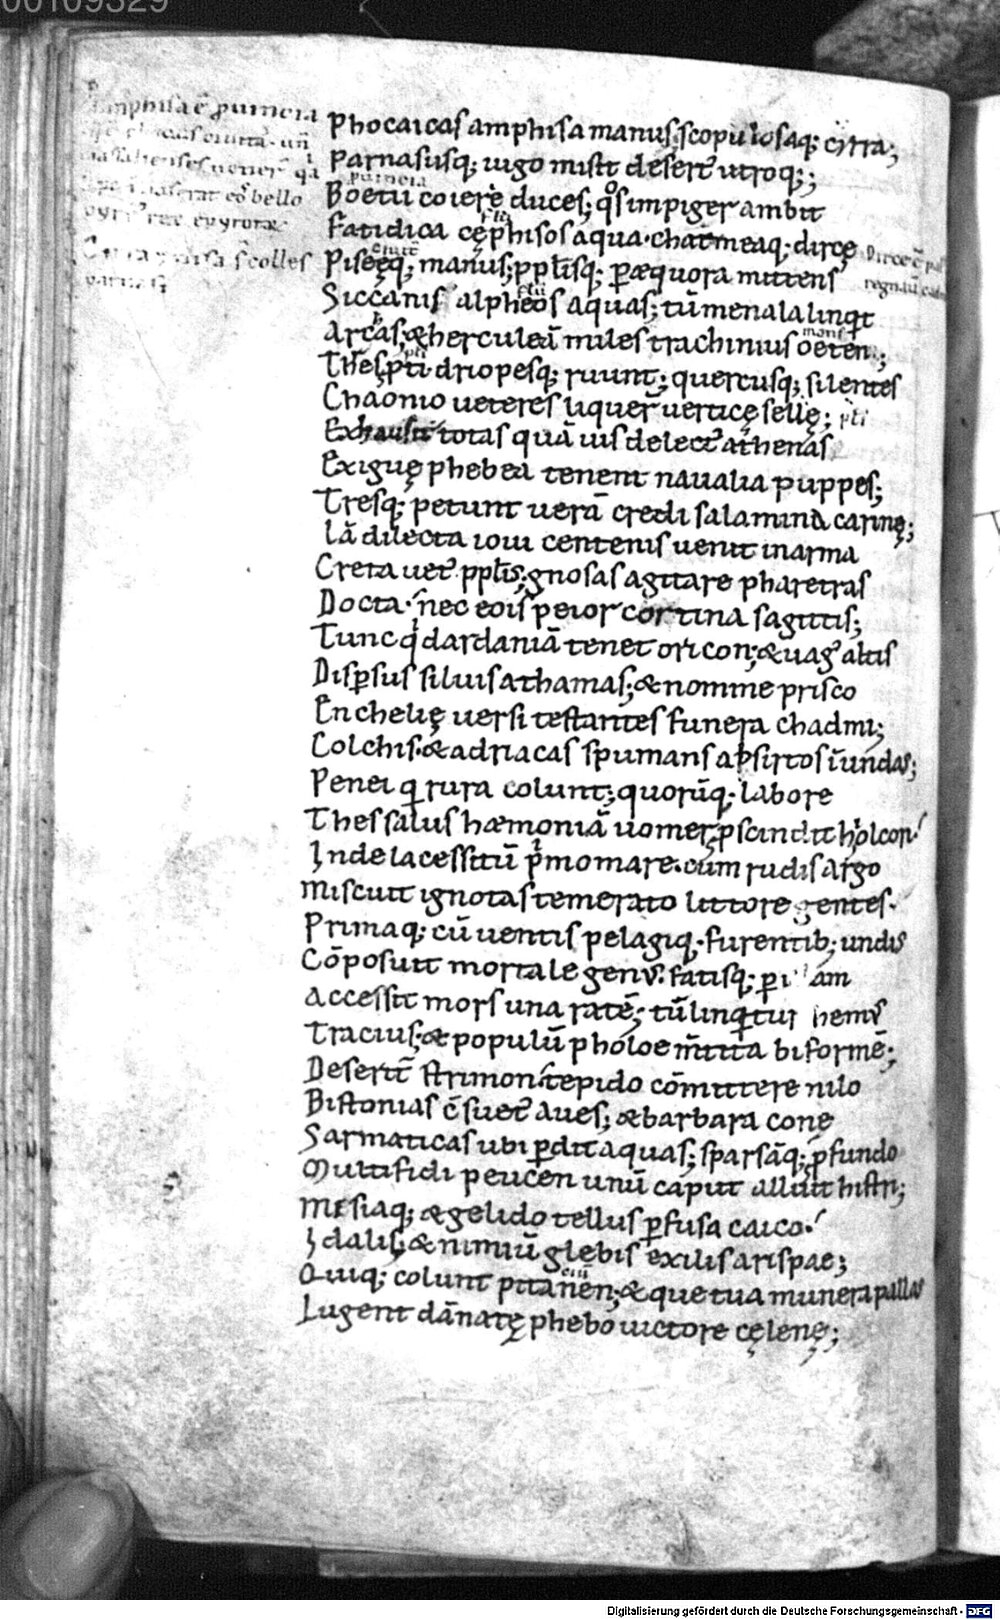 00109329
amphisa ē puincia
Phocaicas amphisa manus; scopulosaq; cirra;
Parnasusq; iugo misit desert' utroq;;
puincia
Boetii coiere duces; qͦs impiger ambit
Fatidica cęphisos aqua· chatmeaq; dirce
Pisęęq; manus; pplisq; p æquora mittens
Siccanis alpheos aquas; tū menala linqt
mons
Arcas; & herculeā miles trachinius oeten;
Thespti driopesq; ruunt; quercusq; silentes
Chaonio ueteres liquer̄ uertice sellę; pli
Exhausit totas quāuis delect' athenas
Exiguę phebea tenent naualia puppes;
Tresq; petunt uerā credi salamina carinę;
Iā dilecta ioui centenis uenit in arma
Creta uet' pplis; gnosas agitare pharetras
Docta· nec eois peior cortina sagittis;
Tunc q dardaniā tenet oricon; & uag' altis
Dispsus siluis athamas; & nomine prisco
Enchelię uersi testantes funera chadmi;
Colchis· & adriacas spumans absirtos ī undas;
Penei q rura colunt; quorūq; labore
Thessalus hæmoniā uomer pscindit holcon·
Inde lacessitū pmo mare· cum rudis argo
Miscuit ignotas temerato littore gentes·
Primaq; cū uentis pelagiq; furentib; undis
Cōposuit mortale gen'· fatisq; p
Accessit mors una ratē; tū linqtur hem'
Tracius; & populū pholoe m̄tita biformē;
Desert' strimon· tepido cōmittere nilo
Bistonias c̄suet' aues; & barbara cone
Sarmaticas ubi pdit aquas; sparsāq; pfundo
Multifidi peucen unū caput alluit histri;
Mesiaq; & gelido tellus pfusa caico·
Idalis; & nimiū glebis exilis arispae;
Quiq; colunt pitanen; & que tua munera pallas
Lugent dānatę phebo uictore cęlenę;
Digitalisierung gefördert durch die Deutsche Forschungsgemeinschaft - DFG